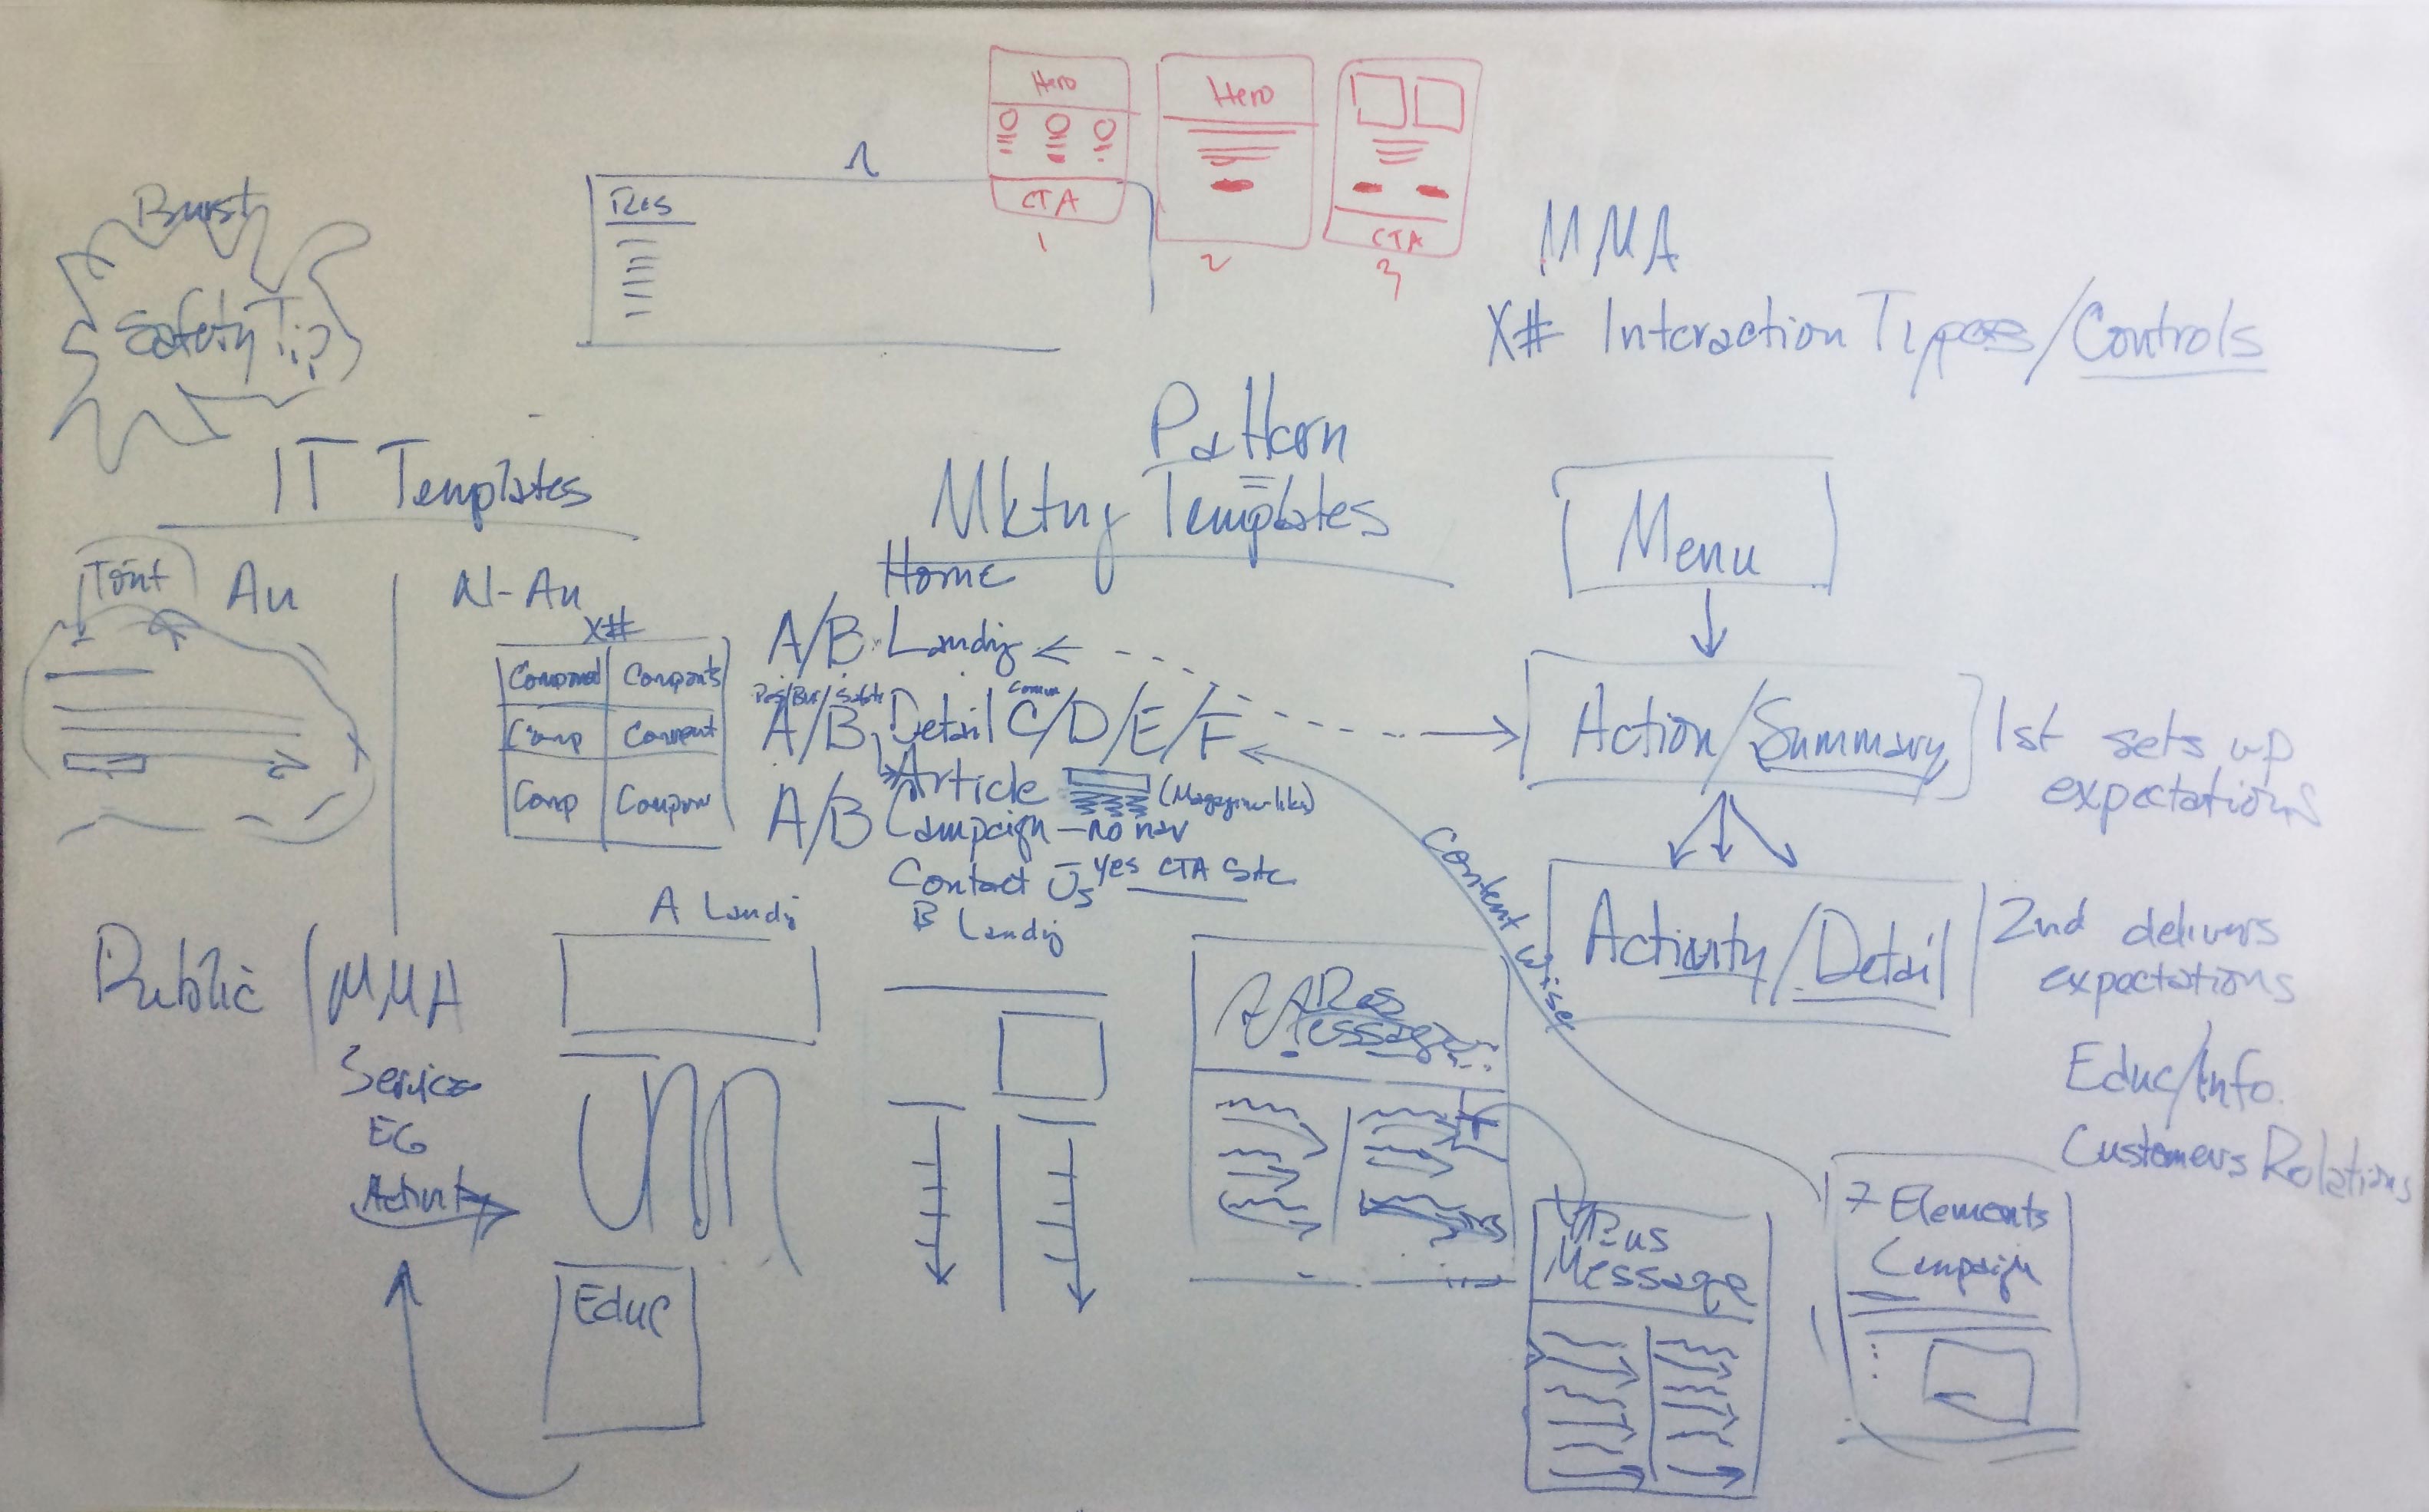 Hero
CTA
1
Hero
2
CTA
3
Burst
Safety Tip
Res
MMA
X# Interaction Types/Controls
IT Templates
Pattern
Mktng Templates
Au
N-Au
X#
Comp
Comp
Home
A/B Landig
A/B Detail C/D/E/F
Comm
Article
(Magazine-like)
A/B Campaign - no nav
Contact Us yes CTA Etc
Menu
Action/Summary
1st sets up
expectations
Activity/Detail
2nd delivers
expectations
Content wise
Public / MMA
Service
EG
Activity
A Landig
B Landig
Educ
Res
Message
Bus
Message
Educ/Info.
Customers Relations
7 Elements
Campaign